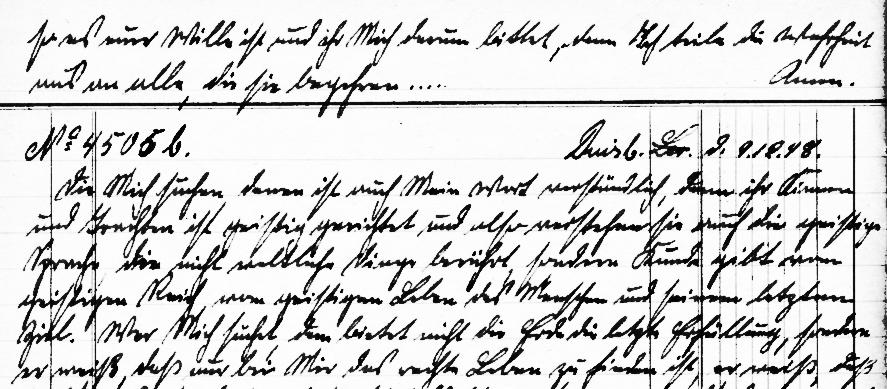 so es euer Wille ist und ihr Mich darum bittet, denn Ich teile die Wahrheit
aus an alle, die sie begehren .....
Amen.
No 4505 b.
Duisb. Ler. d. 9.12.48.
Die Mich suchen denen ist auch Mein Wort verständlich, denn ihr Sinnen
und Trachten ist geistig gerichtet und also verstehen sie auch die geistige
Sprache die nicht weltliche Dinge berührt, sondern Kunde gibt vom
geistigen Reich, vom geistigen Leben des Menschen und seinem letzten
Ziel. Wer Mich sucht dem bietet nicht die Erde die letzte Erfüllung, sondern
er weiß, daß nur bei Mir das rechte Leben zu finden ist, er weiß, daß